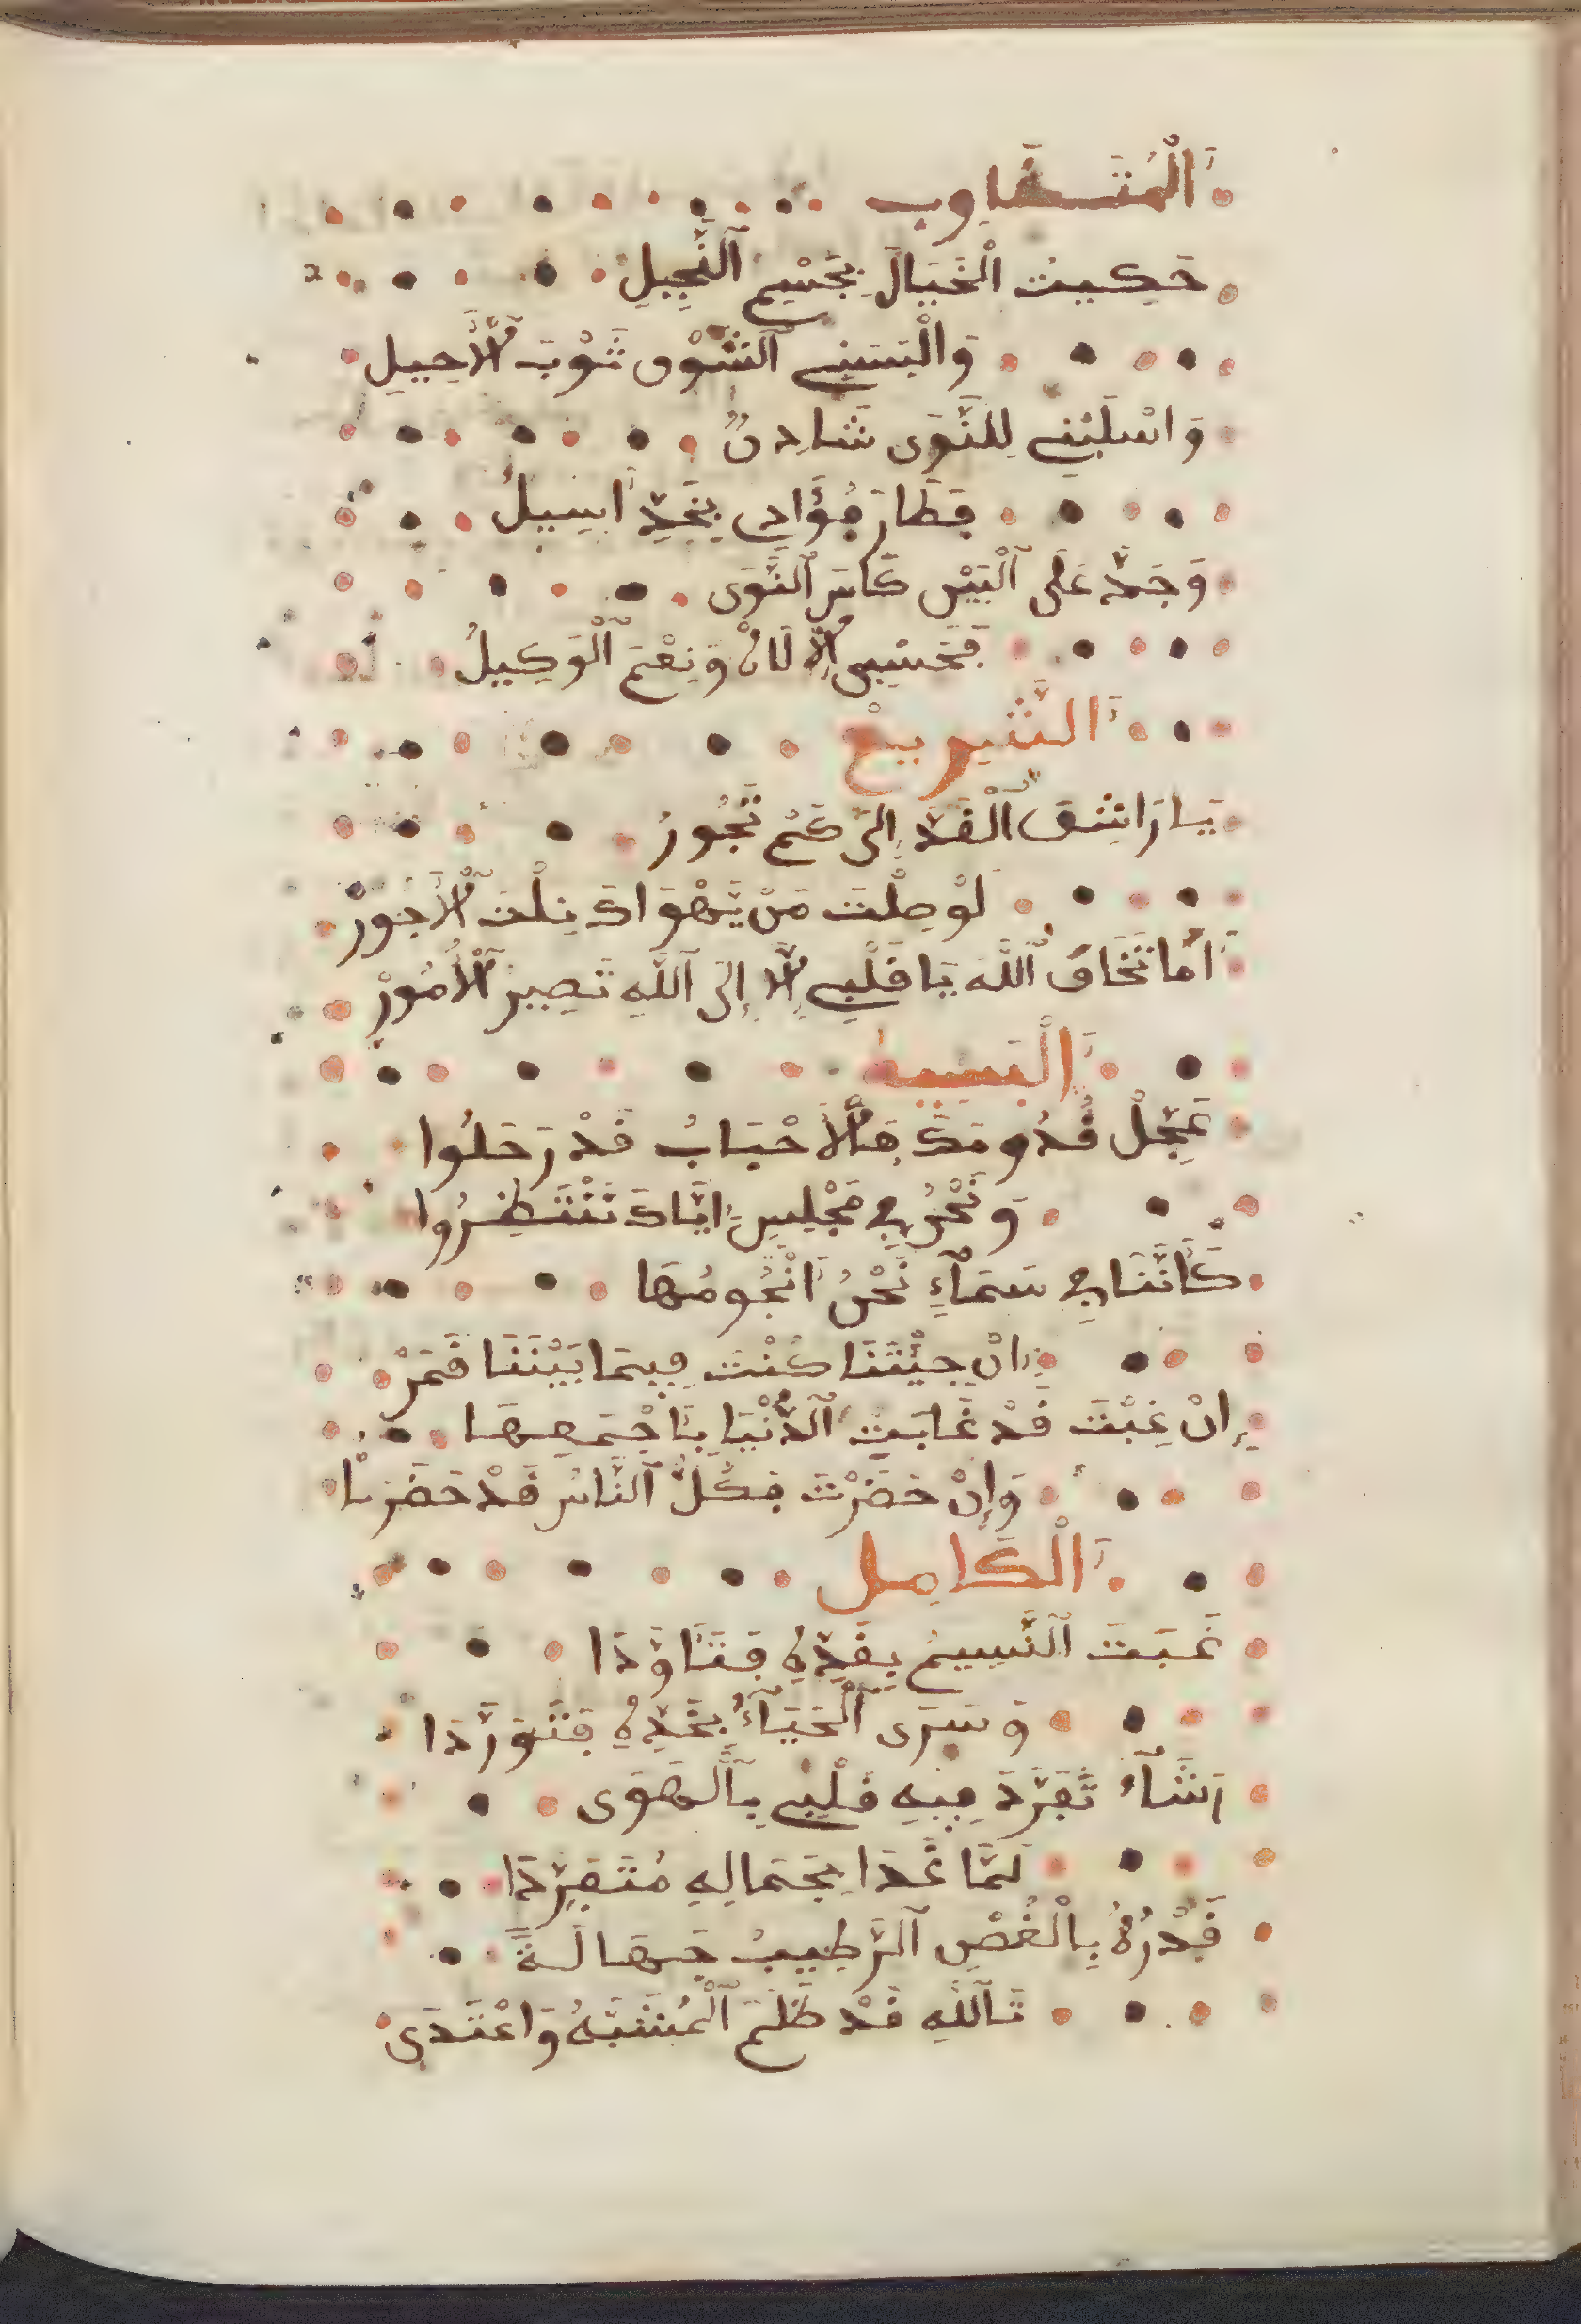 اَلْمُتَقَارِب
حَكِيتُ الْخَيَالَ بِجَسْمِ النَّحِيلِ
وَالْبَسَنِي الشَّوْقُ ثَوْبَ الْأَحِيلِ
وَاسْلَبَنِي لِلنَّوَى شَادِنٌ
فَطَارَ فُؤَادِي بِخَدِّ اَسِيلُ
وَجَدَّ عَلَى الْبَيْنِ كَاسَ النَّوَى
فَحَسْبِي وَنِعْمَ الْوَكِيلُ
يَا رَاشِقَ الْقَدِّ إِلَى كَمْ تَجُورُ
لَوْ صِلْتَ مَنْ يَهْوَاكَ نِلْتَ الْأُجُورْ
أَمَا تَخَافُ اللَّهَ يَا قَلْبِي إِلَّا إِلَى اللَّهِ تَصِيرُ الْأُمُورْ
اَلْبَسِيط
عَجِّلْ قُدُومَكَ فَالْأَحْبَابُ قَدْ رَحَلُوا
وَنَحْنُ فِي مَجْلِسٍ اِيَّاكَ نَنْتَظِرُوا
كَأَنَّنَا فِي سَمَآءٍ نَحْنُ اَنْجُومُهَا
اِنْ جِئْتَنَا كُنْتَ فِيمَا بَيْنَنَا قَمَرْ
اِنْ غِبْتَ قَدْ غَابَتِ الدُّنْيَا بِأَجْمَعِهَا
وَإِنْ حَضَرْتَ فَكُلُّ النَّاسِ قَدْ حَضَرْنَا
اَلْكَامِل
عَبَتَ النَّسِيمُ بِقَدِّهِ فَتَأَوَّدَا
وَسَرَى الْحَيَآءُ بِخَدِّهِ فَتَوَرَّدَا
رَشَآءٌ تَفَرَّدَ فِيهِ قَلْبِي بِالْهَوَى
لَمَّا غَدَا بِجَمَالِهِ مُتَفَرِّدَا
بِالْغُصْنِ الرَّطِيبِ جَهَالَةً
تَاللَّهِ قَدْ ظَلَمَ الْمُشَبِّهُ وَاعْتَدَى